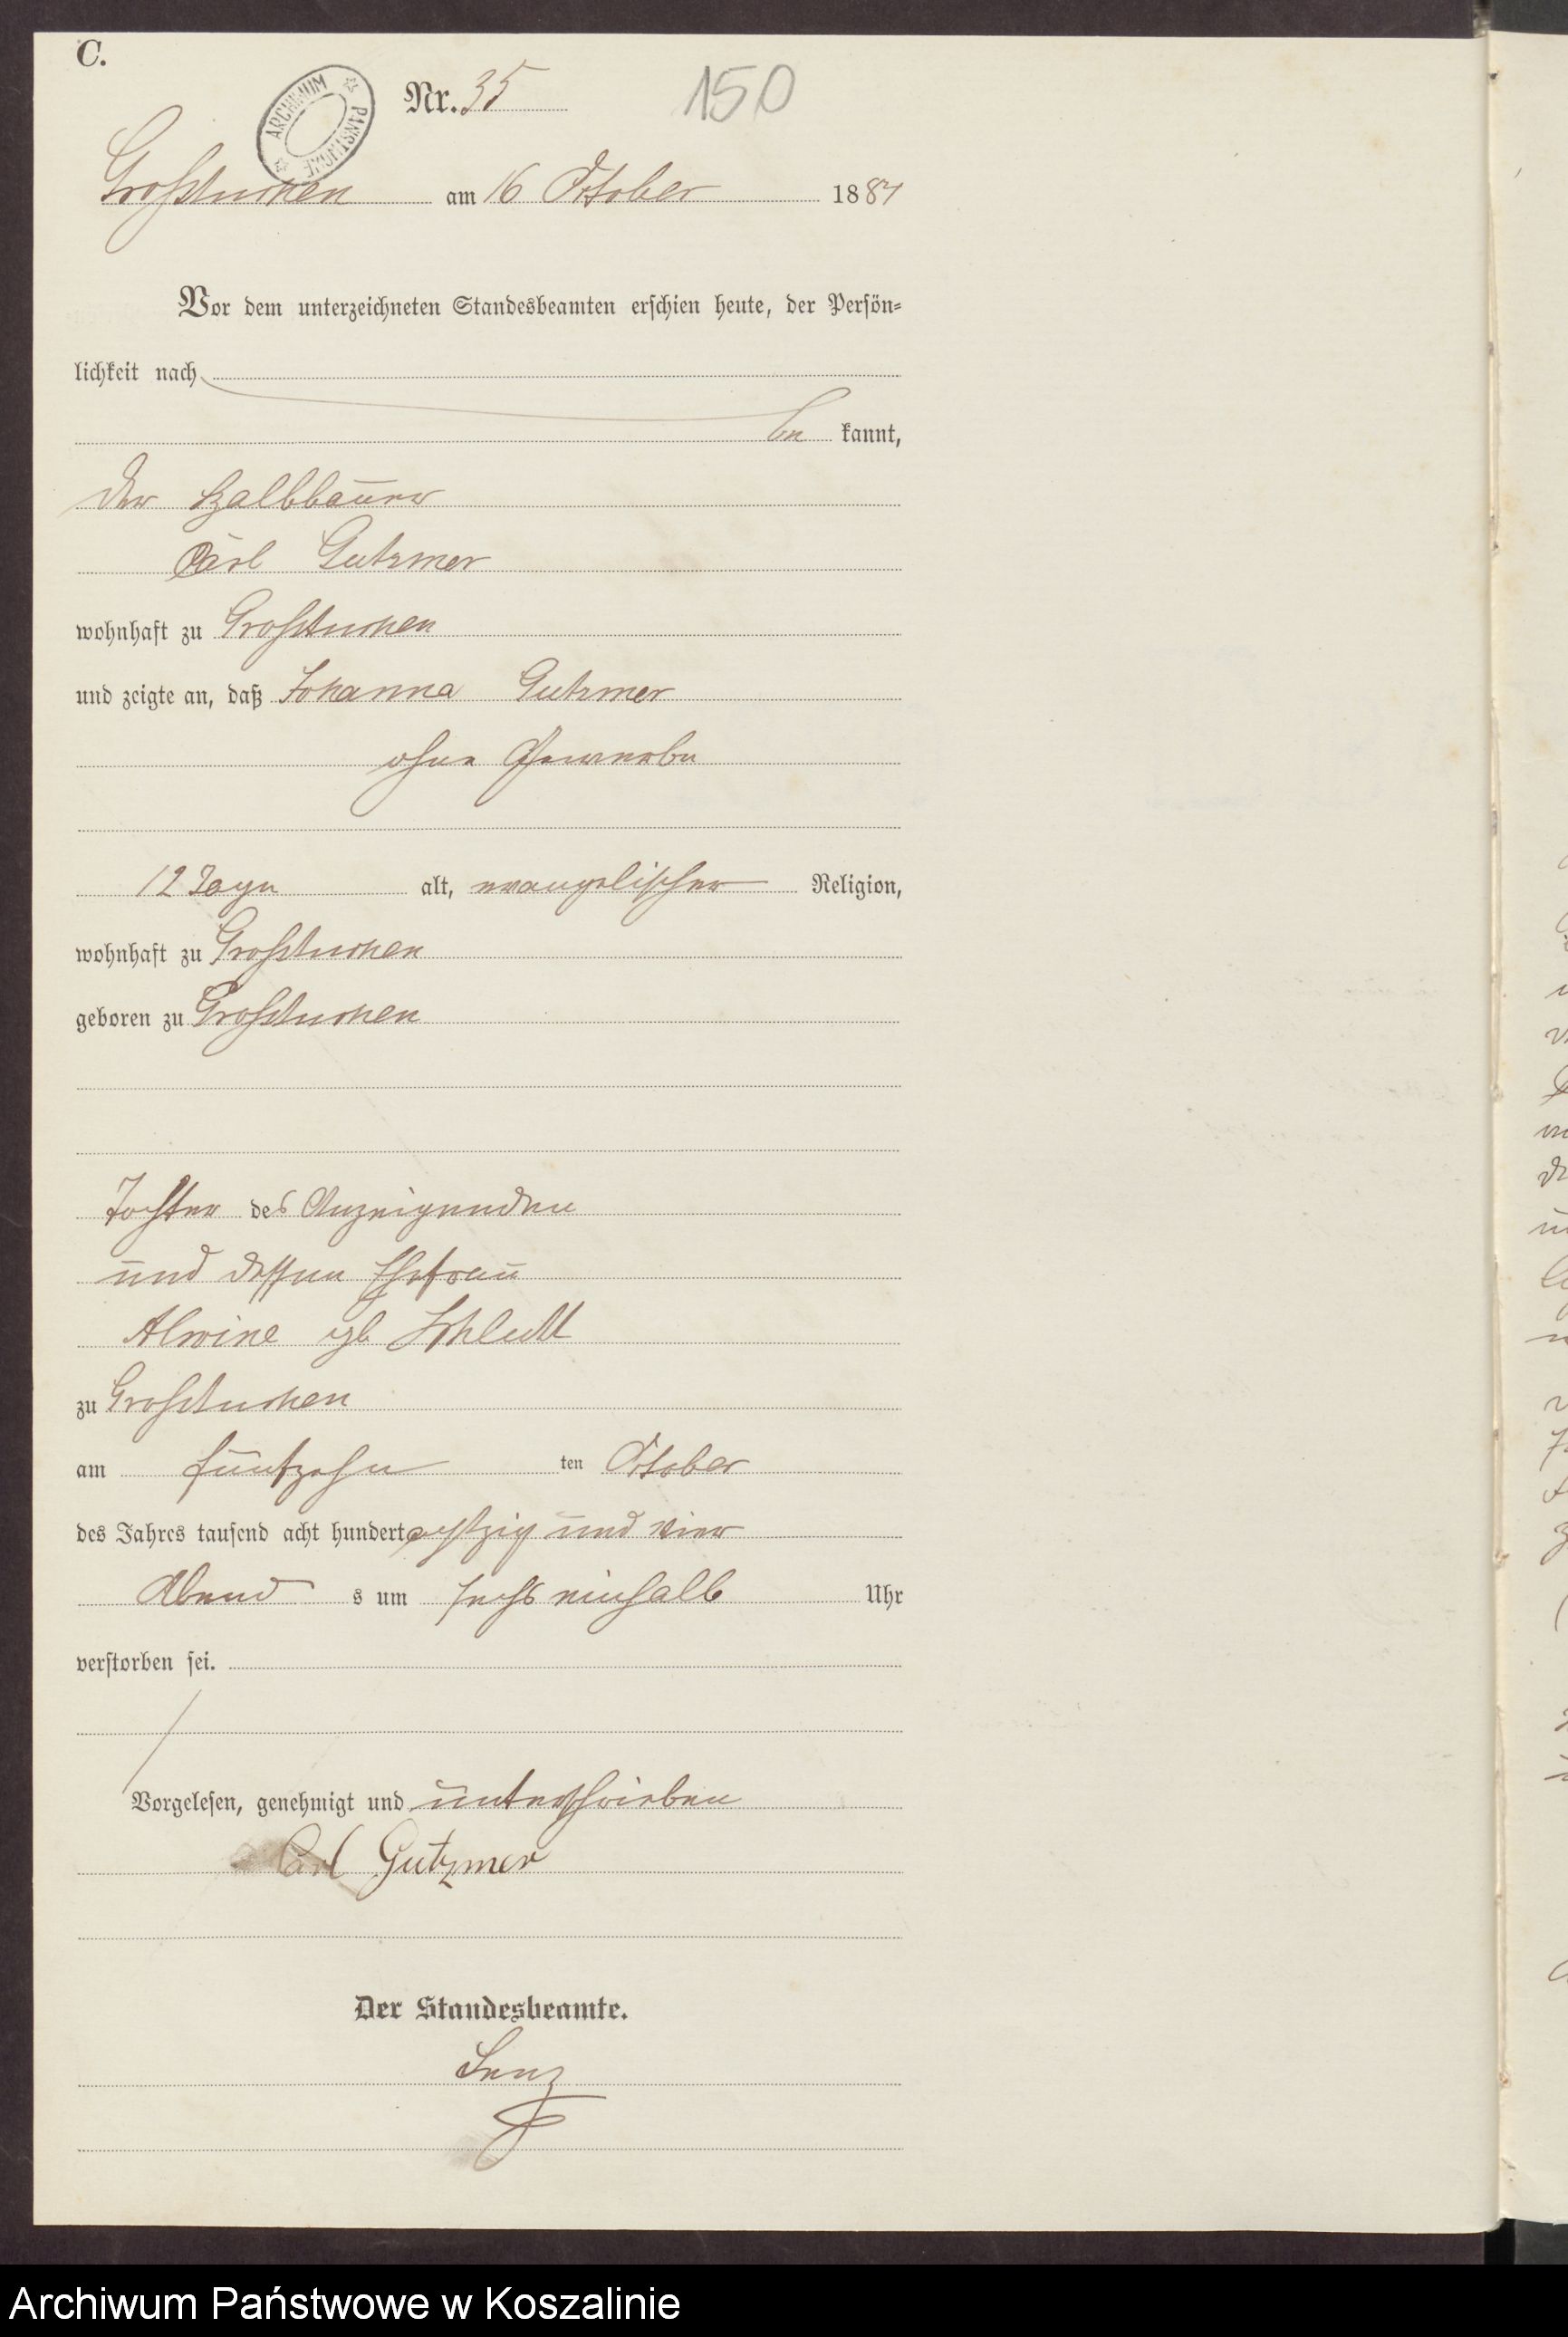 C.
Nr. 35 150
ARCHIWUM PAŃSTWOWE
Großtuchen am 16 October 1884
Vor dem unterzeichneten Standesbeamten erschien heute, der Persön-
lichkeit nach
be kannt,
der Halbbauer
Carl Gutzmer
wohnhaft zu Großtuchen
und zeigte an, daß Johanna Gutzmer
ohne Gewerbe
12 Tage alt, evangelischer Religion,
wohnhaft zu Großtuchen
geboren zu Großtuchen
Tochter des Anzeigenden
und dessen Ehefrau
Alwine gb
zu Großtuchen
am fünfzehn ten October
des Jahres tausend acht hundert achtzig und vier
Abend s um sechs einhalb Uhr
verstorben sei.
Vorgelesen, genehmigt und unterschrieben
Carl Gutzmer
Der Standesbeamte.
Lenz
Archiwum Państwowe w Koszalinie